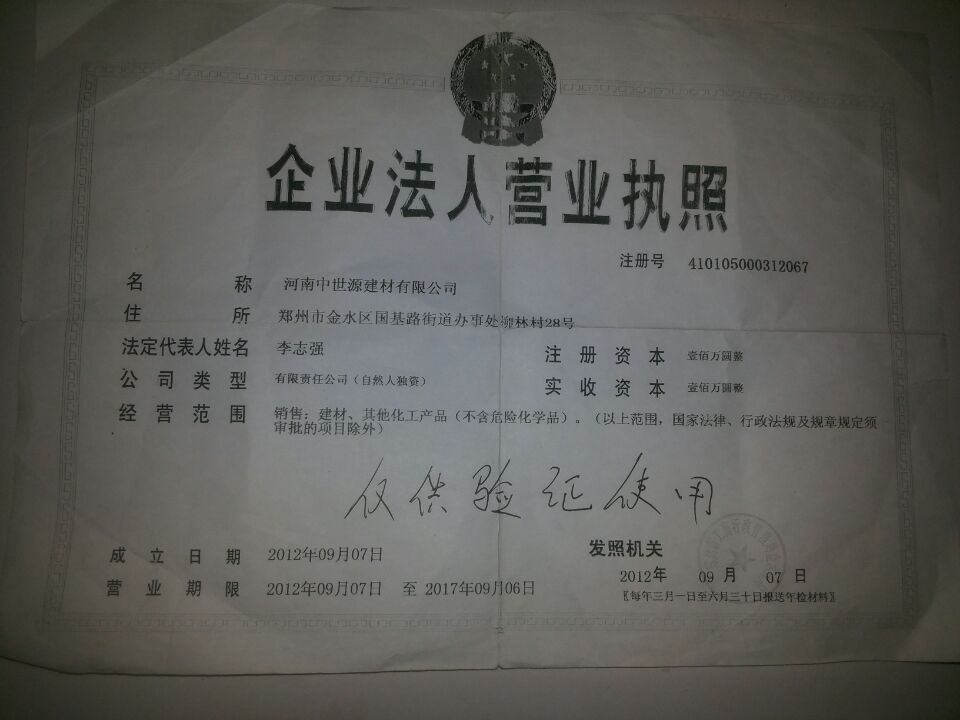 企业法人营业执照
注册号 410105000312067
名称 河南中世源建材有限公司
住所 郑州市金水区国基路街道办事处柳林村28号
法定代表人姓名 李志强
注册资本 壹佰万圆整
公司类型 有限责任公司（自然人独资）
实收资本 壹佰万圆整
经营范围 销售：建材、其他化工产品（不含危险化学品）。（以上范围，国家法律、行政法规及规章规定须
审批的项目除外）
仅供验证使用
成立日期 2012年09月07日
发照机关
营业期限 2012年09月07日 至 2017年09月06日
2012年 09月 07日
〖每年三月一日至六月三十日报送年检材料〗